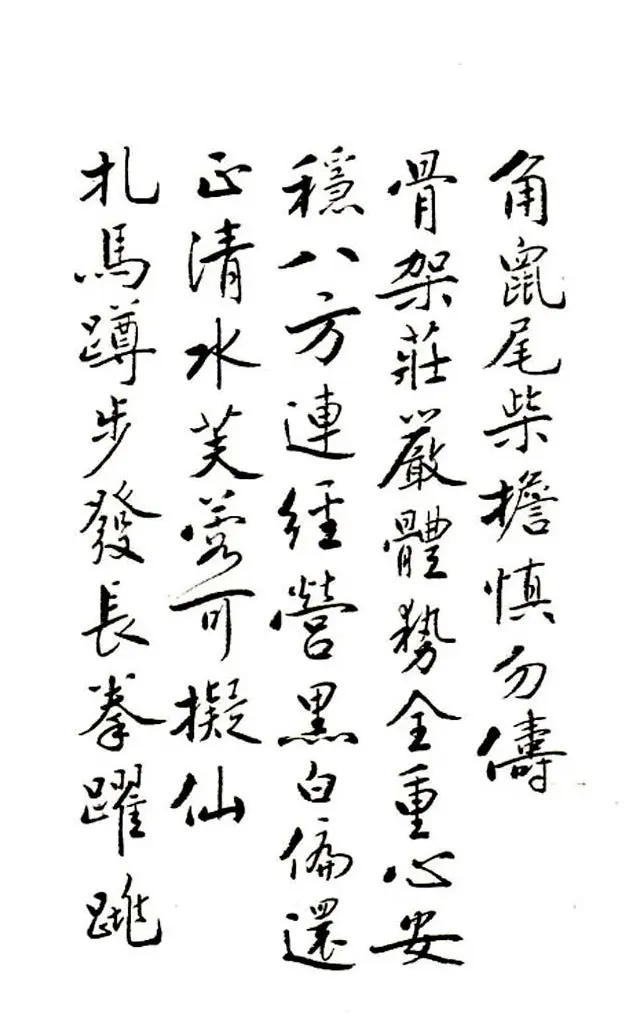 角鼠尾柴擔慎勿儔
骨架莊嚴體勢全重心安
穩八方連經營黑白偏還
正清水芙蓉可擬仙
扎馬蹲步發長拳躍跳